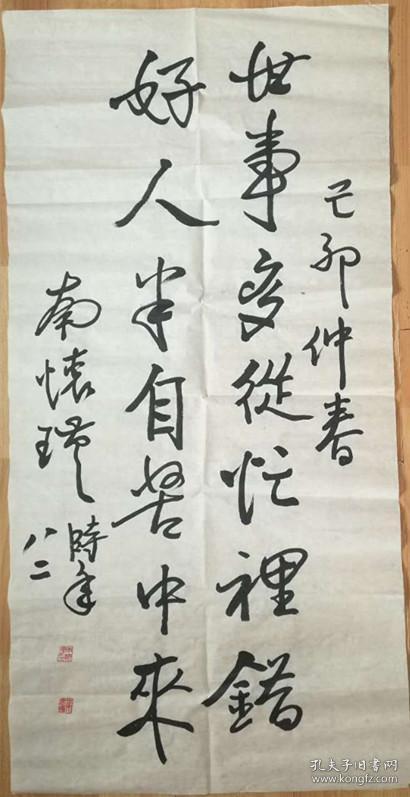 己卯仲春
世事多從忙裡錯
好人半自苦中來
南懷瑾
時年
八二
孔夫子旧书网
www.kongfz.com